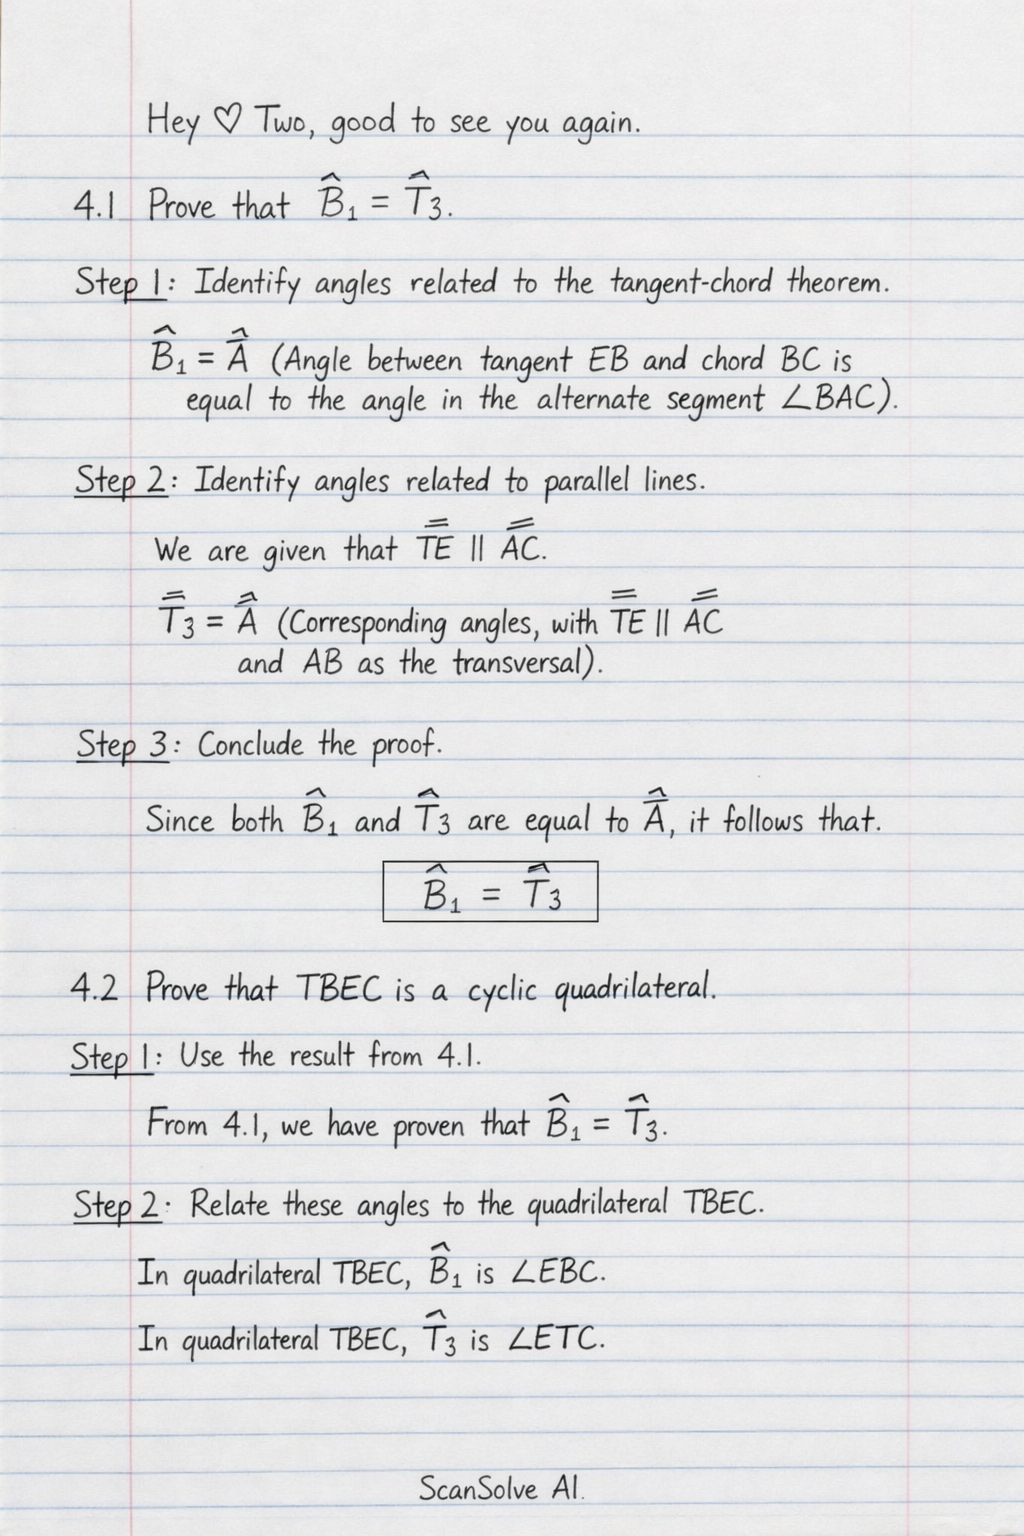 Hey ♡ Two, good to see you again.
4.1 Prove that B̂₁ = T̂₃.
Step 1: Identify angles related to the tangent-chord theorem.
B̂₁ = Â (Angle between tangent EB and chord BC is
equal to the angle in the alternate segment ∠BAC).
Step 2: Identify angles related to parallel lines.
We are given that TE || AC.
T₃ = Â (Corresponding angles, with TE || AC
and AB as the transversal).
Step 3: Conclude the proof.
Since both B̂₁ and T̂₃ are equal to Â, it follows that.
B̂₁ = T̂₃
4.2 Prove that TBEC is a cyclic quadrilateral.
Step 1: Use the result from 4.1.
From 4.1, we have proven that B̂₁ = T̂₃.
Step 2: Relate these angles to the quadrilateral TBEC.
In quadrilateral TBEC, B̂₁ is ∠EBC.
In quadrilateral TBEC, T̂₃ is ∠ETC.
ScanSolve AI.